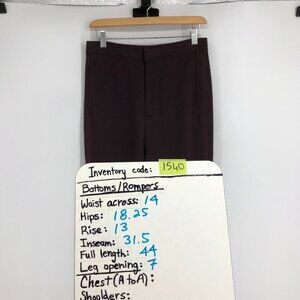 Inventory code: 1540
Bottoms/Rompers
Waist across: 14
Hips: 18.25
Rise: 13
Inseam: 31.5
Full length: 44
Leg opening: 7
Chest (A to A):
Shoulders: